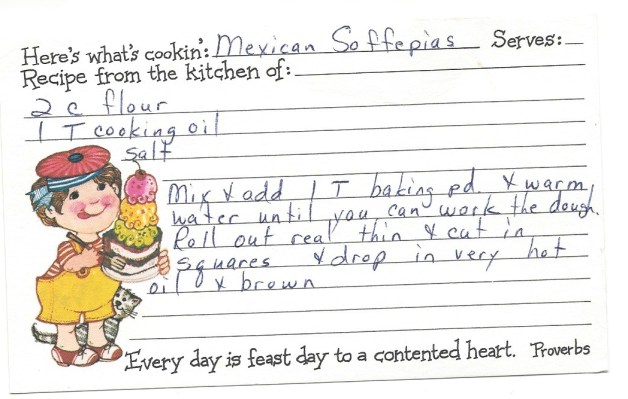 Here's what's cookin': Mexican Soffepias Serves:
Recipe from the kitchen of:
2 c flour
1 T cooking oil
salt
Mix & add 1 T baking pd. & warm
water until you can work the dough.
Roll out real thin & cut in
squares & drop in very hot
oil & brown
Every day is feast day to a contented heart. Proverbs